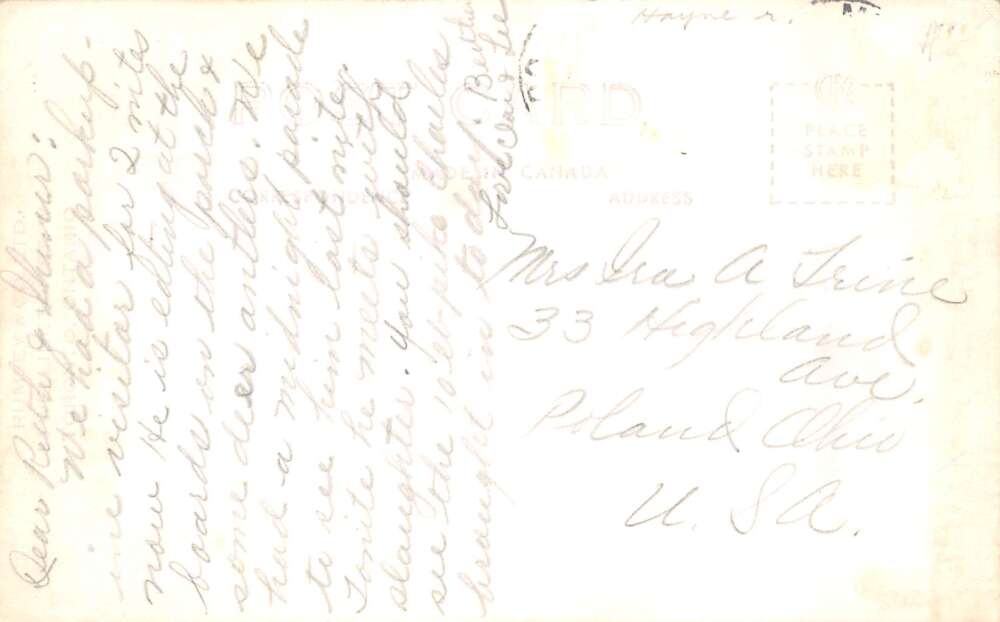 Dear Ruth & Shimer:
We had a porkup-
ine visitor for 2 nites
now He is eating at the
boards on the porch &
some deer antlers. We
had a midnight parade
to see him last nite.
Tonite he meets with
slaughter. You should
see the 10 lb pike Charles
brought in to day.
Love
Lee
Hayne r.
POST CARD
MADE IN CANADA
CORRESPONDENCE
ADDRESS
PLACE
STAMP
HERE
Mrs Ira A Trine
33 Highland
Ave.
Poland Ohio
U. S A.